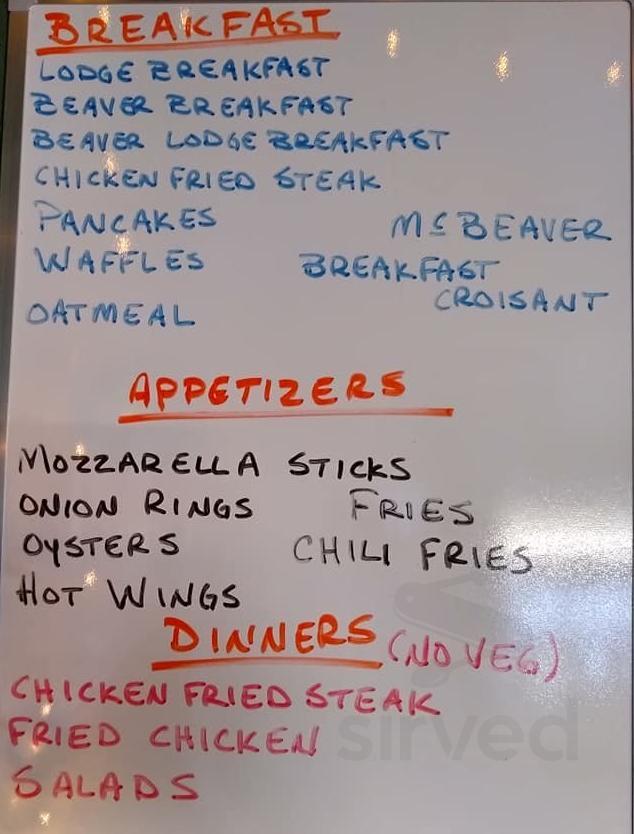 BREAKFAST
LODGE BREAKFAST
BEAVER BREAKFAST
BEAVER LODGE BREAKFAST
CHICKEN FRIED STEAK
PANCAKES
MC BEAVER
WAFFLES
BREAKFAST
CROISANT
OATMEAL
APPETIZERS
MOZZARELLA STICKS
ONION RINGS
FRIES
OYSTERS
CHILI FRIES
HOT WINGS
DINNERS (NO VEG)
CHICKEN FRIED STEAK
FRIED CHICKEN
SALADS
sirved